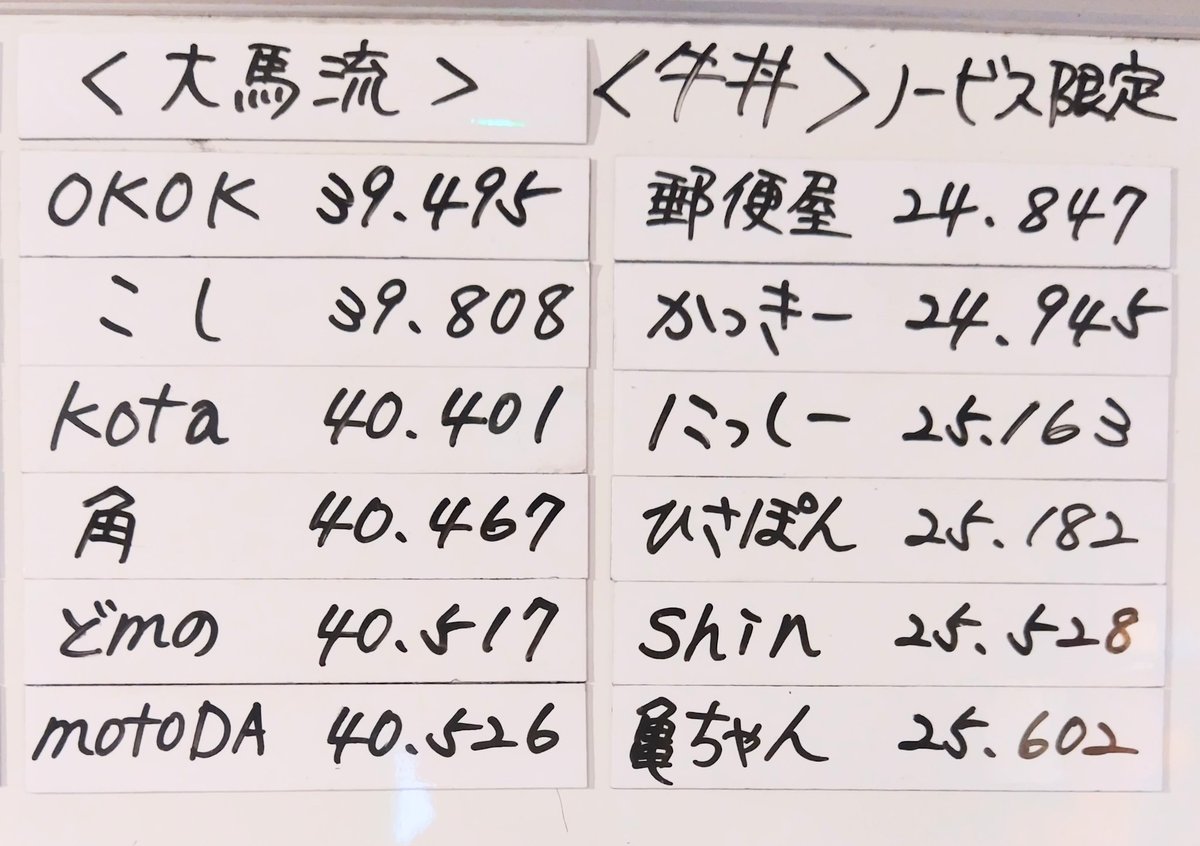 <大馬流>
OKOK 39.495
こし 39.808
kota 40.401
角 40.467
どmの 40.517
motoDA 40.526
<牛丼>ノービス限定
郵便屋 24.847
かっきー 24.945
にっしー 25.163
ひさぽん 25.182
shin 25.528
亀ちゃん 25.602